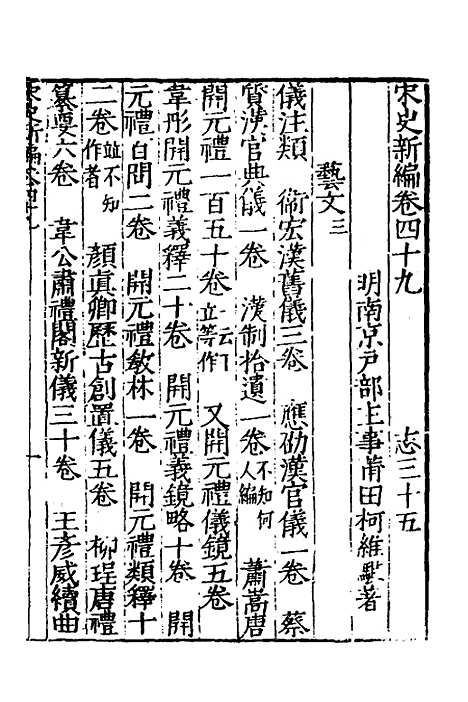 宋史新編卷四十九 志三十五
明南京戶部主事莆田柯維騏著
藝文三
儀注類 衞宏漢舊儀三卷 應劭漢官儀一卷 蔡
質漢官典儀一卷 漢制拾遺一卷不知何人編 蕭嵩唐
開元禮一百五十卷一云王立等作 又開元禮儀鏡五卷
韋彤開元禮義釋二十卷 開元禮義鏡略十卷 開
元禮百問二卷 開元禮教林一卷 開元禮類釋十
二卷並不知作者 顏眞卿歷古創置儀五卷 柳珵唐禮
纂要六卷 韋公肅禮閣新儀三十卷 王彥威續曲
宋史新編卷四十九 一